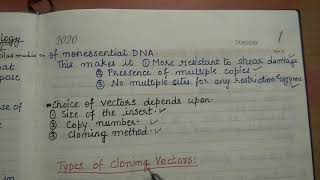 ology
2020
TUESDAY
1
of nonessential DNA.
that
This makes it ① More resistant to shear damage
pose
② Presence of multiple copies
③ No multiple sites for any restriction enzyme
se of
• Choice of vectors depends upon-
① Size of the insert.
② Copy number.
③ Cloning method.
Types of Cloning Vectors: